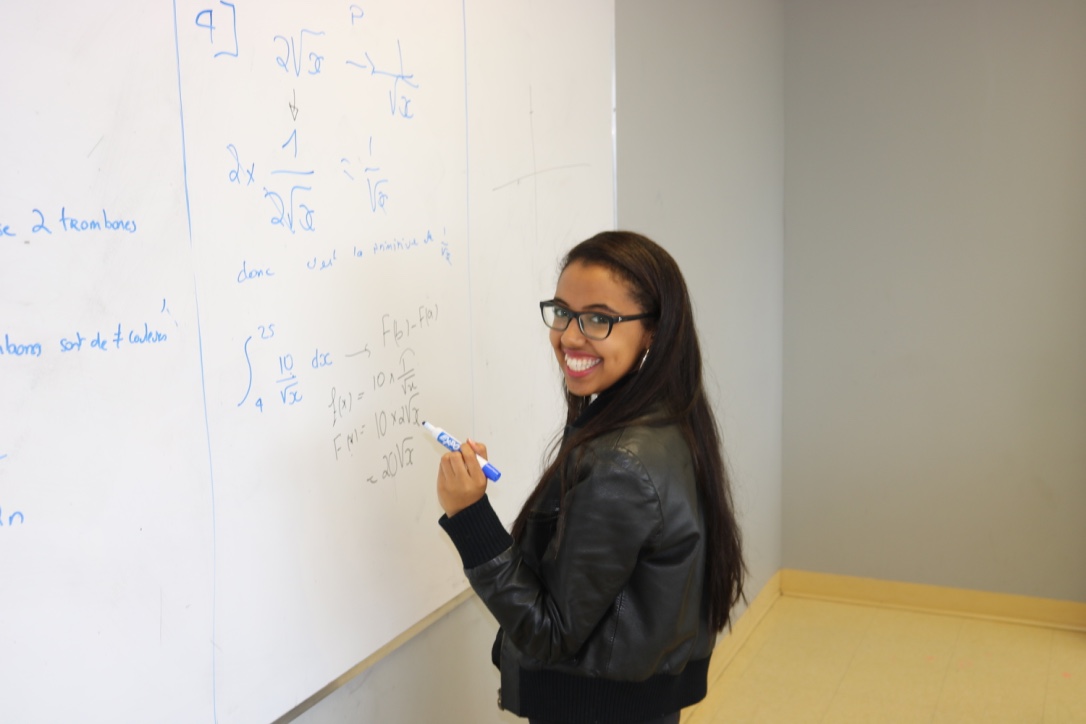 2 trombones
sont de ≠ couleurs
4]
P
2√x → 1/√x
↓
2 × 1/2√x = 1/√x
donc c'est la primitive de 1/√x
∫₄²⁵ 10/√x dx → F(b) - F(a)
f(x) = 10 × 1/√x
F(x) = 10 × 2√x
= 20√x